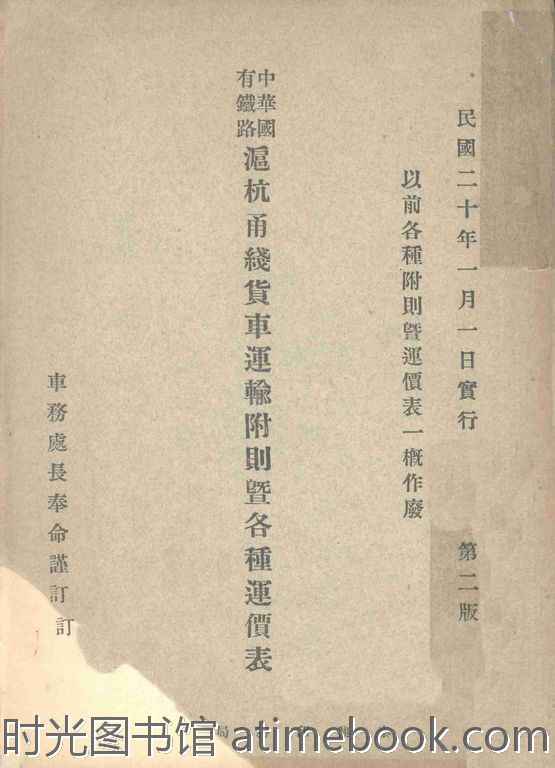 民國二十年一月一日實行 第二版
以前各種附則曁運價表一槪作廢
中華國有鐵路
滬杭甬綫貨車運輸附則曁各種運價表
車務處長奉命謹訂
訂
局
时光图书馆 atimebook.com